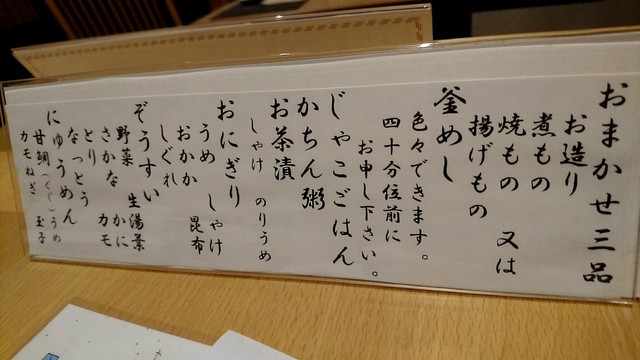 おまかせ三品
お造り
煮もの
焼もの 又は
揚げもの
釜めし
色々できます。
四十分位前に
お申し下さい。
じゃこごはん
かちん粥
お茶漬
しゃけ のりうめ
おにぎり
うめ しゃけ
おかか 昆布
しぐれ
ぞうすい
野菜 生湯葉
さかな かに
とり カモ
なっとう
にゅうめん
甘鯛(ぐじ) うめ
カモねぎ 玉子